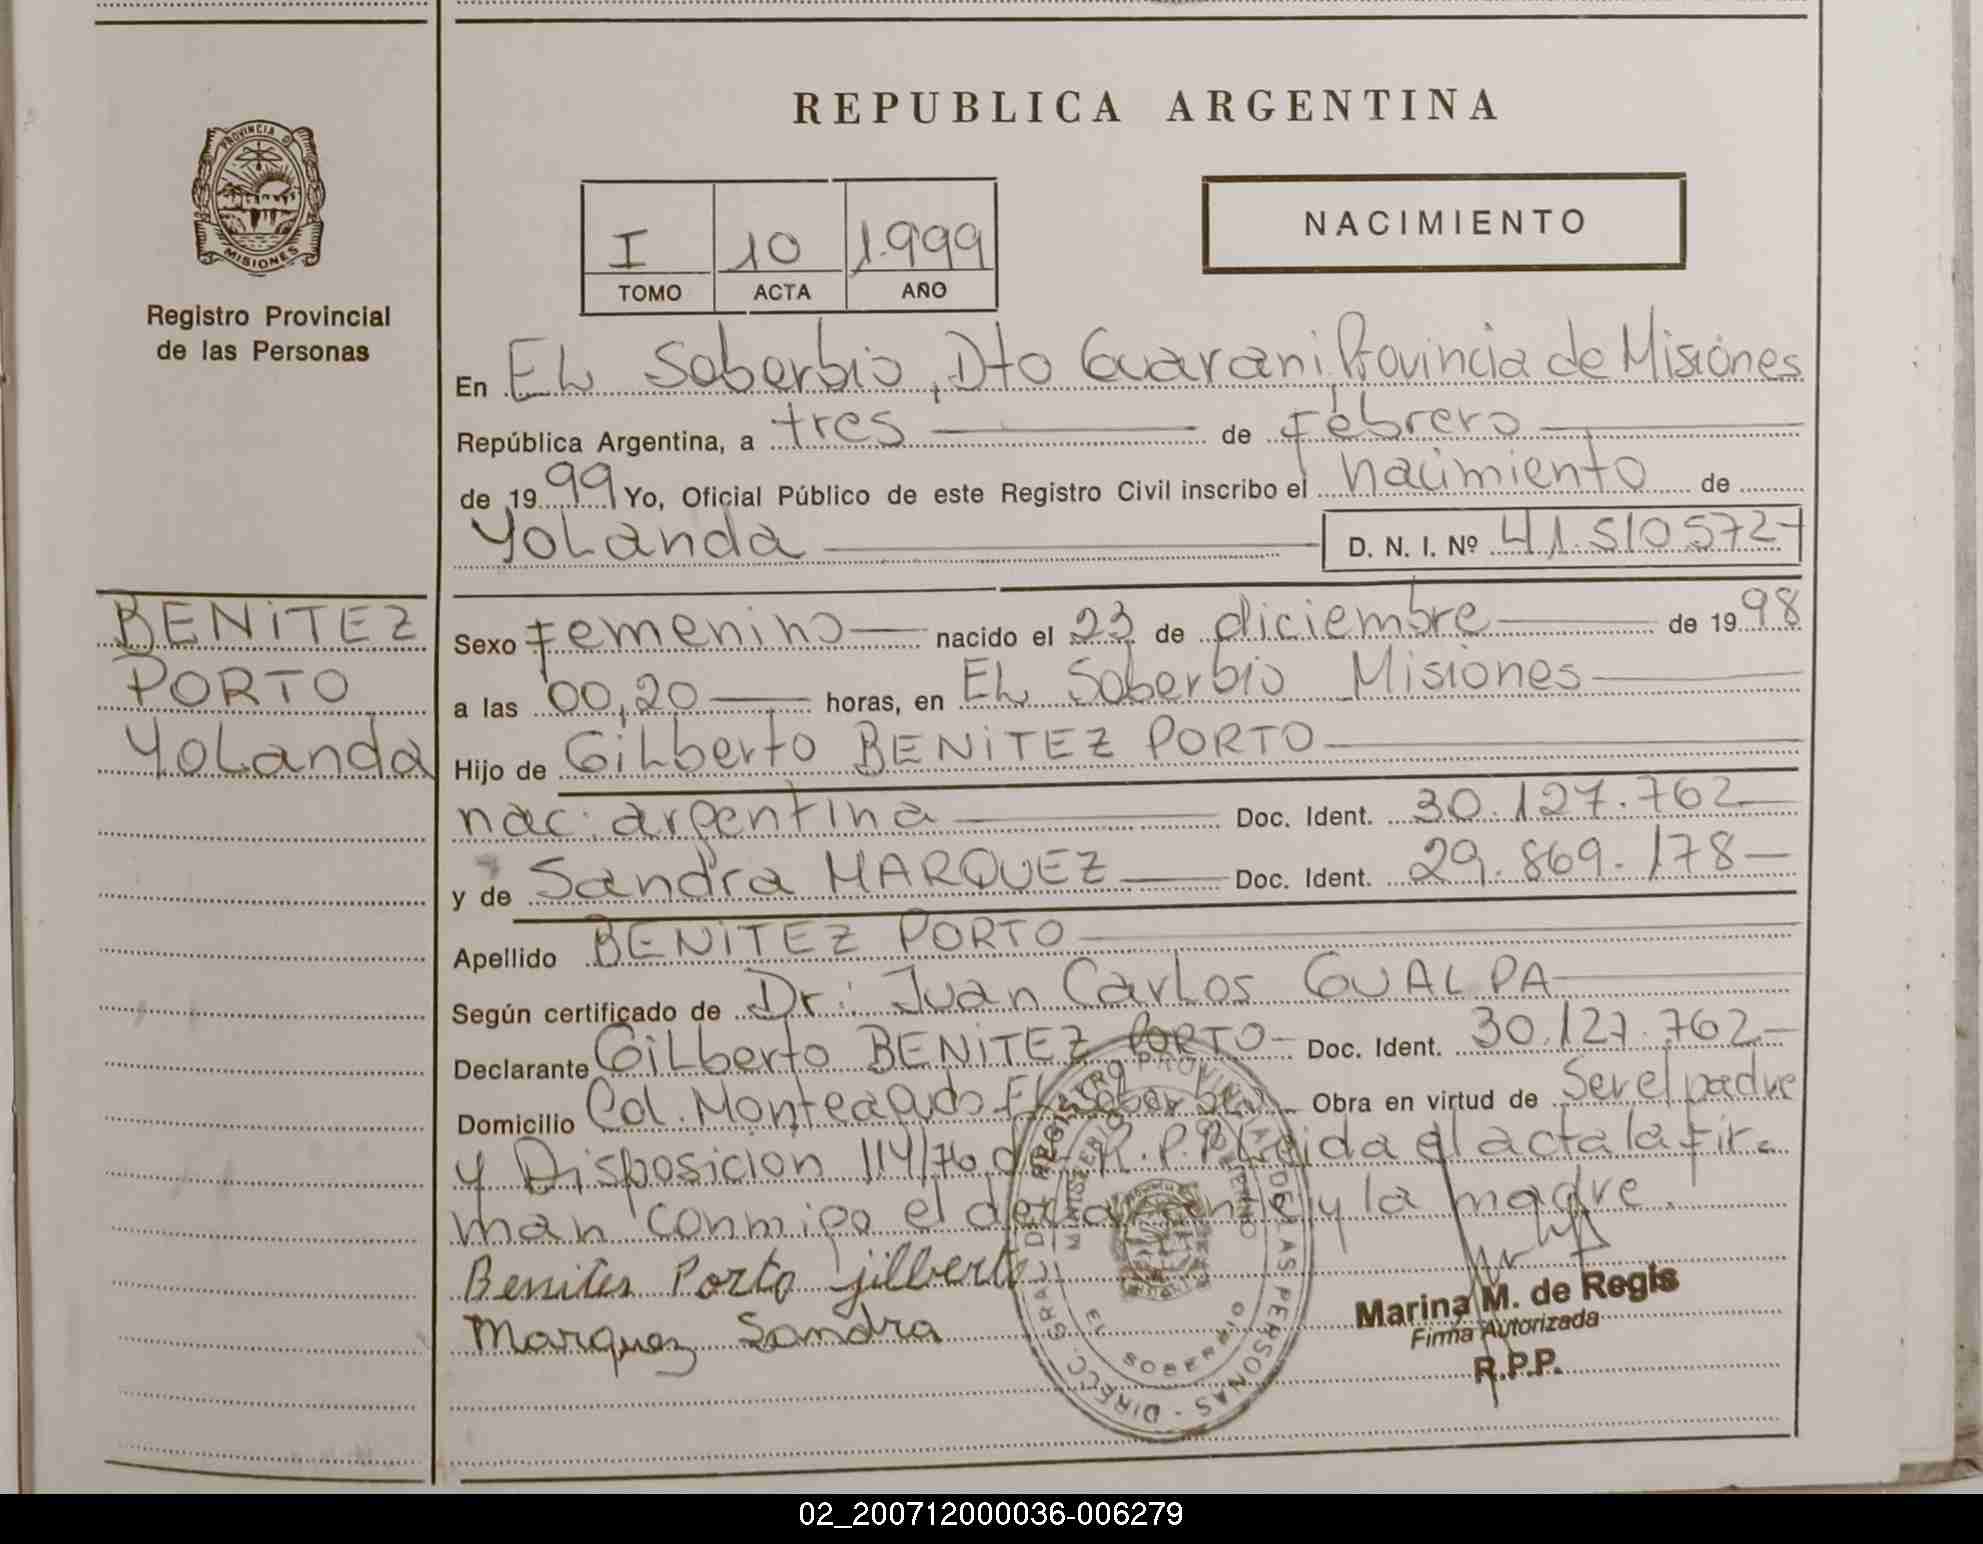 REPUBLICA ARGENTINA
PROVINCIA DE
MISIONES
Registro Provincial
de las Personas
NACIMIENTO
I 10 1.999
TOMO ACTA AÑO
En EL Soberbio, Dto Guarani Provincia de Misiones
República Argentina, a tres de Febrero
de 1999 Yo, Oficial Público de este Registro Civil inscribo el nacimiento de
Yolanda D. N. I. Nº 41.510572
BENITEZ
PORTO
Yolanda
Sexo Femenino nacido el 23 de diciembre de 1998
a las 00,20 horas, en EL Soberbio Misiones
Hijo de GiLberto BENiTEZ PORTO
nac. argentina Doc. Ident. 30.127.762
y de Sandra MARQUEZ Doc. Ident. 29.869.178
Apellido BENiTEZ PORTO
Según certificado de Dr. Juan CarLos GUALPA
Declarante GiLberto BENiTEZ PORTO Doc. Ident. 30.127.762
Domicilio Col. Monteagudo EL Soberbio Obra en virtud de Ser el padre
y Disposicion 114/76 del R.P.P. Leida el acta la fir-
man conmigo el declarante y la madre.
Benites Porto gilberto
Marquez Sandra
REGISTRO PROVINCIAL DE LAS PERSONAS - DIRECC. GRAL.
MINISTERIO DE GOBIERNO
EL SOBERBIO
Marina M. de Regis
Firma Autorizada
R.P.P.
02_200712000036-006279